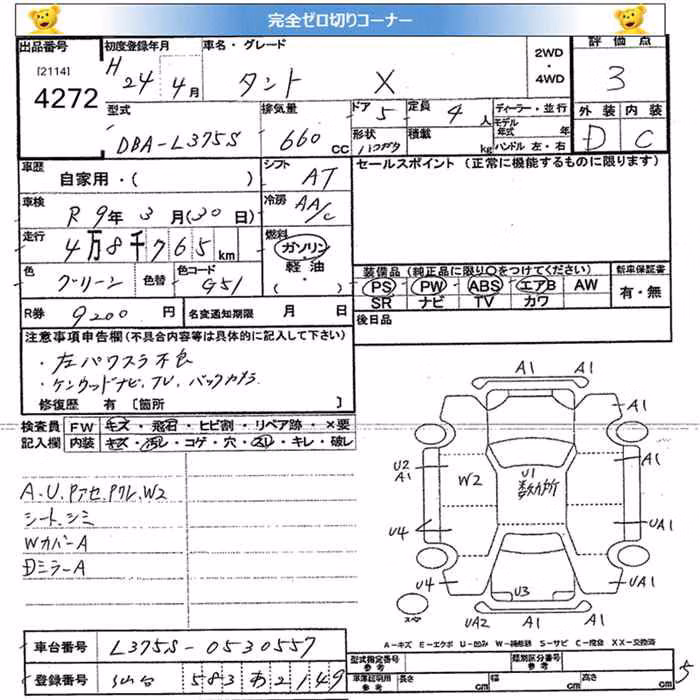 完全ゼロ切りコーナー
出品番号 初度登録年月 車名・グレード 評価点
[2114]
4272
H 24 4月
タント X
2WD
・
4WD
3
型式 排気量 ドア 5 定員 4人 ディーラー・並行 外装 内装
DBA-L375S 660 CC 形状 積載 kg モデル年式 年 ハンドル 左・右 D C
車歴 自家用・( ) シフト AT セールスポイント (正常に機能するものに限ります)
車検 R 9年 3月(30日) 冷房 AA/C
走行 4万8千765km 燃料 ガソリン・軽油・( )
色 グリーン 色替 色コード G51
装備品 (純正品に限り○をつけてください) 新車保証書
PS PW ABS エアB AW 有・無
SR ナビ TV カワ
R券 9200円 名変通知期限 月 日 後日品
注意事項申告欄(不具合内容等は具体的に記入して下さい)
・左パワスラ不良
・ケンウッドナビ、TV、バックカメラ
修復歴 有 〔箇所 〕
検査員 FW キズ・飛石・ヒビ割・リペア跡・×要
記入欄 内装 キズ・汚レ・コゲ・穴・スレ・キレ・破レ
A.U.Pアセ.Pクレ.W2
シート.シミ
Wカバ-A
Dミラ-A
A1 A1
A1
U2
A1
W2
U1
多数箇所
A1
U4
UA1
U4
U3
UA1
スペア
UA2 A1 A1
A-キズ E-エクボ U-凹み W-補修跡 S-サビ C-腐食 XX-交換済
車台番号 L375S-0530557
登録番号 仙台 583 あ 2149
型式指定番号 参考 類別区分番号 参考
車庫証明用 参考 長さ cm 幅 cm 高さ cm
5